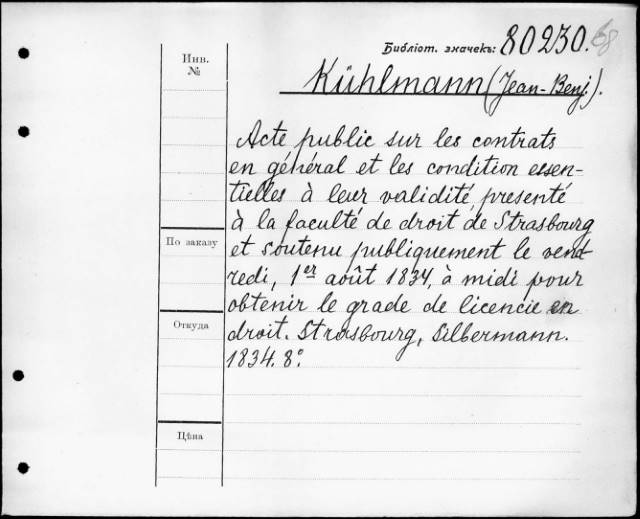 Библіот. значекъ: 80230.
Инв.
№
Kühlmann (Jean-Benj.).
Acte public sur les contrats
en général et les condition essen-
tielles à leur validité, presenté
à la faculté de droit de Strasbourg
По заказу
et soutenu publiquement le vend-
redi, 1er août 1834, à midi pour
obtenir le grade de licencie en
Откуда
droit. Strasbourg, Silbermann.
1834. 8°.
Цѣна